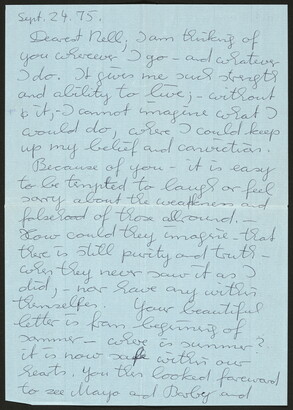 Sept. 24. 75.
Dearest Nell, I am thinking of
you wherever I go - and whatever
I do. It gives me such strength
and ability to live; - without
it, - I cannot imagine what I
would do, where I could keep
up my belief and conviction.
Because of you - it is easy
to be tempted to laugh or feel
sorry about the weakness and
falsehood of those all around. -
How could they imagine - that
there is still purity and truth -
when they never saw it as I
did, - nor have any within
themselves. Your beautiful
letter is from beginning of
summer - where is summer?
it is now safe within our
hearts. You then looked forward
to see Mayo and and